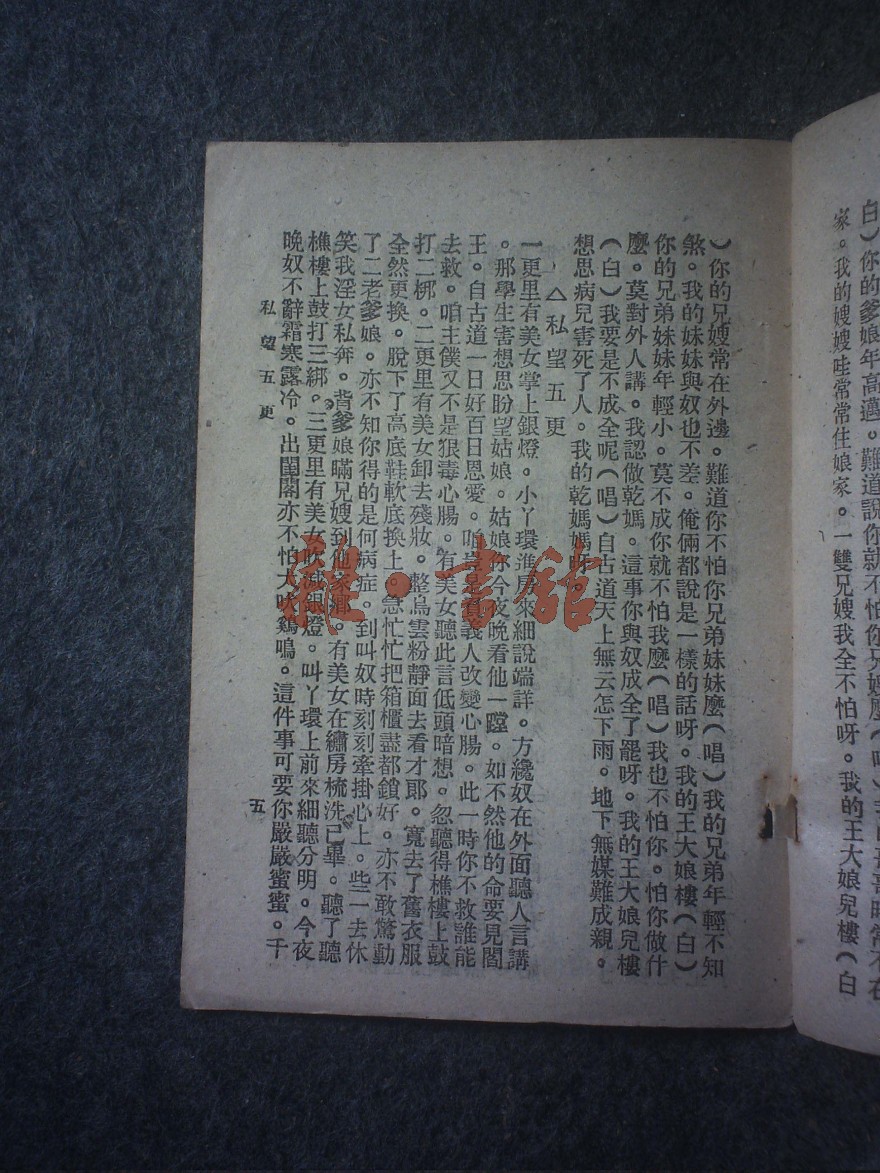 白）你的爹娘年高邁。難道說你就不怕你兄嫂麼（
家。我的嫂嫂哇常常住娘家。一雙兄嫂我全不怕呀。我的王大娘兒樓（白
）你的兄嫂常在外邊。難道你不怕你兄弟妹妹麼（唱）我的兄弟年輕不知
煞。我的妹妹與奴也不差。俺倆都說是一樣的話呀。我的王大娘樓（白）
你的兄弟妹妹年輕小。莫不成你就不怕我麼（唱）我也不怕你。怕你做什
麼。莫對外人講。我認做乾媽。這事你與奴成全了罷呀。我的王大娘兒樓
（白）我要是不成全呢（唱）自古道天上無云怎下雨。地下無媒難成親。
想思病兒害死了人。我的乾媽媽呀。
△私望五更
一更里有美女掌上銀燈。小丫環進房來細說端詳。方纔奴在外面聽人言講
。那學生害想思盼望姑娘。姑娘你今夜晚看他一蹚。如不然他的命要見閻
王。自古道一日好百日恩愛。咱豈是負義人改變心腸。此一時你不救誰能
去救。咱主僕又不是狠毒心腸。有美女聽此言低頭暗想。忽聽得樵樓上鼓
打二梆。二更里有美女卸去殘妝。整烏雲粉靜面去看才郎。寬去了舊衣服
全然更換。脫下了高底鞋軟底換上。急忙忙把箱櫃盡都鎖好。亦不敢驚動
了二老爹娘。亦不知你得的是何病症。到叫奴時刻刻牽掛心上。些一去休
笑我淫女私奔。背爹娘瞞兄嫂到他家鄉。有美女在繡房梳洗已畢。聽了聽
樵樓上鼓打三綁。三更里有美女吹滅銀燈。叫丫環上前來細聽分明。今夜
晚奴不辭霜寒露冷。出閨閣亦不怕犬吠鷄鳴。這件事可要你嚴嚴蜜蜜。千
私望五更
五
雜·書館